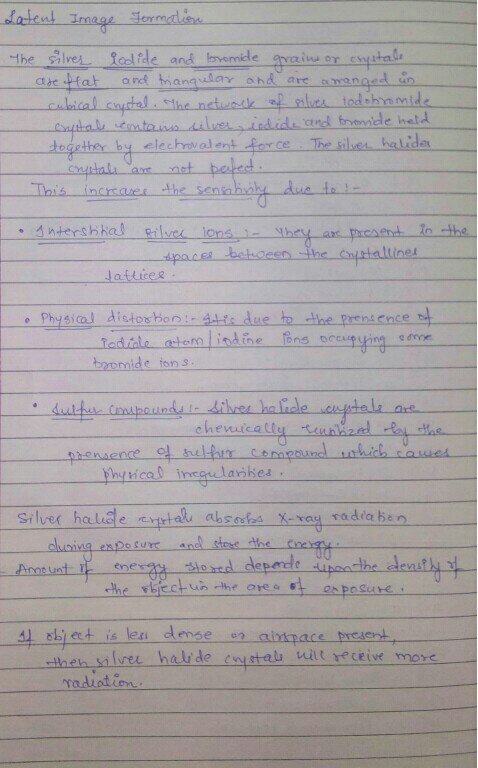 Latent Image Formation
The silver iodide and bromide grains or crystals
are flat and triangular and are arranged in
cubical crystal. The network of silver iodobromide
crystals contains silver, iodide and bromide held
together by electrovalent force. The silver halides
crystals are not perfect.
This increases the sensitivity due to :-
• Interstitial silver ions :- They are present in the
spaces between the crystallines
lattices.
• Physical distortion :- It is due to the prensence of
iodide atom/iodine ions occupying some
bromide ions.
• Sulfur compounds :- Silver halide crystals are
chemically sensitized by the
prensence of sulfur compound which causes
physical irregularities.
Silver halide crystals absorbs X-ray radiation
during exposure and store the energy.
Amount of energy stored depends upon the density of
the object in the area of exposure.
If object is less dense or airspace present,
then silver halide crystals will receive more
radiation.